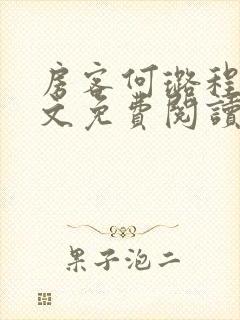 房客何璐程
文免費閱讀
果子泡二